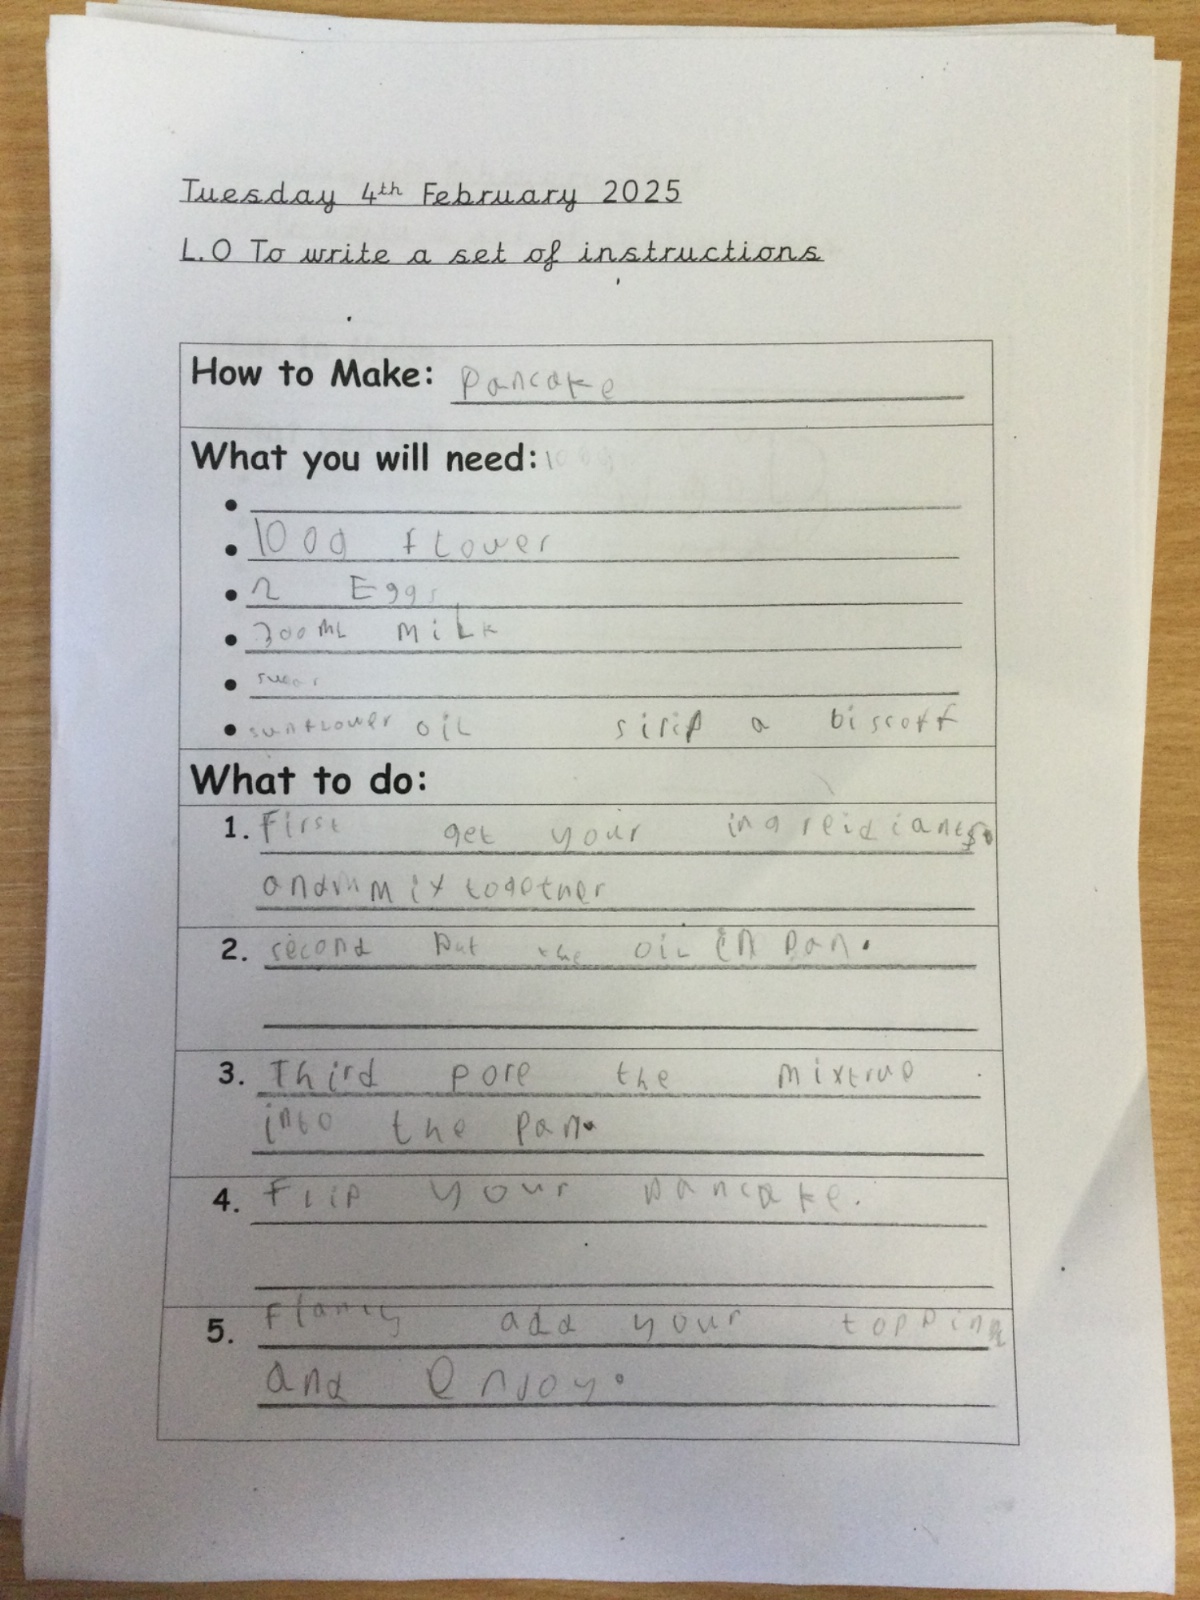 Tuesday 4th February 2025
L.O To write a set of instructions
How to Make: pancake
What you will need:
100g flower
2 Eggs
300ML MiLk
sunflower oiL sirip a biscoff
What to do:
1. First get your ingreidiants.
and mix together
2. second put the oiL in pan.
3. Third pore the mixtrue
into the pan.
4. FLip your pancake.
5. Flanily add your topping
and enjoy.